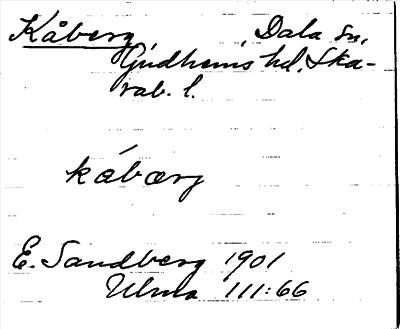 Kåberg, Dala sn,
Gudhems hd, Ska-
rab. l.
kábærg
E. Sandberg 1901
Ulma 111:66